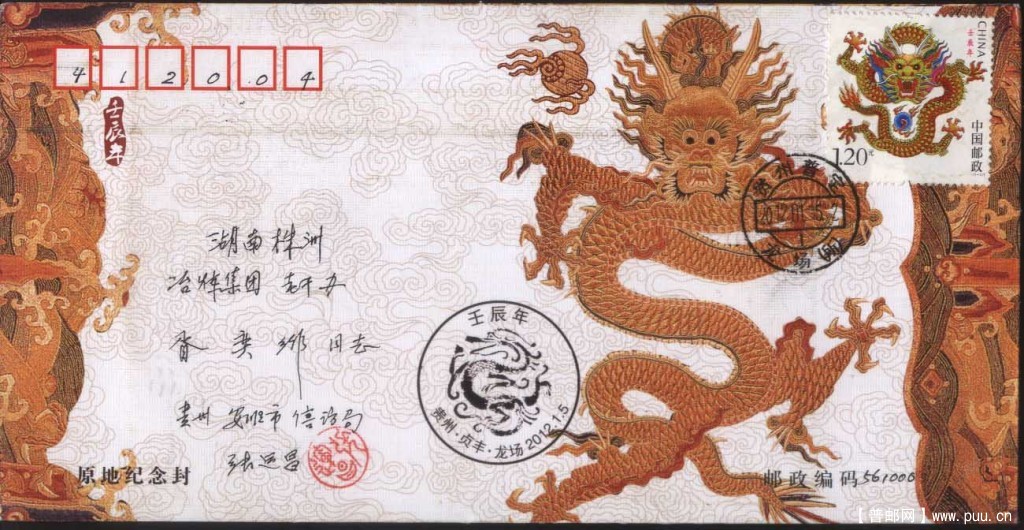 412004
壬辰年
CHINA
壬辰年
中国邮政
1.20元
2012.01.05
龙场
湖南株洲
冶炼集团 老干办
同志
贵州 安顺市 信访局
张运昌
壬辰年
贵州·贞丰·龙场 2012.1.5
原地纪念封
邮政编码 561000
【普邮网】www.puu.cn